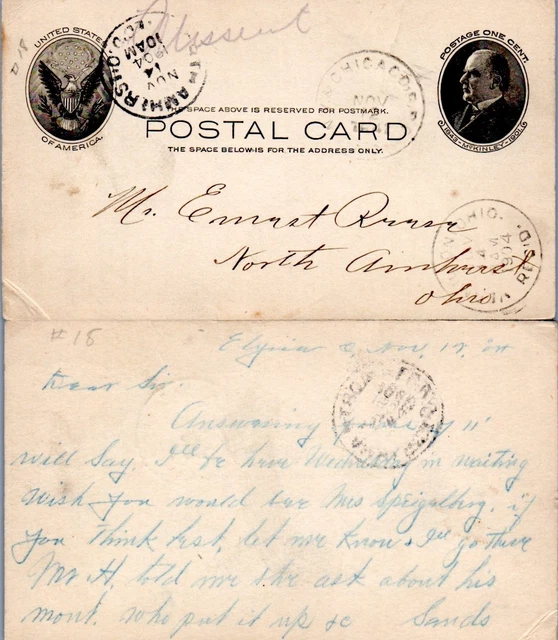 Missent
UNITED STATES
OF AMERICA.
NOV
14
10AM
1904
OHIO.
CHICAGO
NOV
POSTAGE ONE CENT.
1843-McKINLEY-1901
THE SPACE ABOVE IS RESERVED FOR POSTMARK.
POSTAL CARD
THE SPACE BELOW IS FOR THE ADDRESS ONLY.
Mr. Ernest
North Amherst
Ohio
OHIO.
REC'D.
#18
Elyria O, Nov, 12, 04
Dear Sir.
Answering yours of 11"
will say. I'll be here Wednesday in waiting
Wish you would see Mrs if
you think best, let me know & I'll go there
Mr H. told me she ask about his
mont. who put it up &c Sands